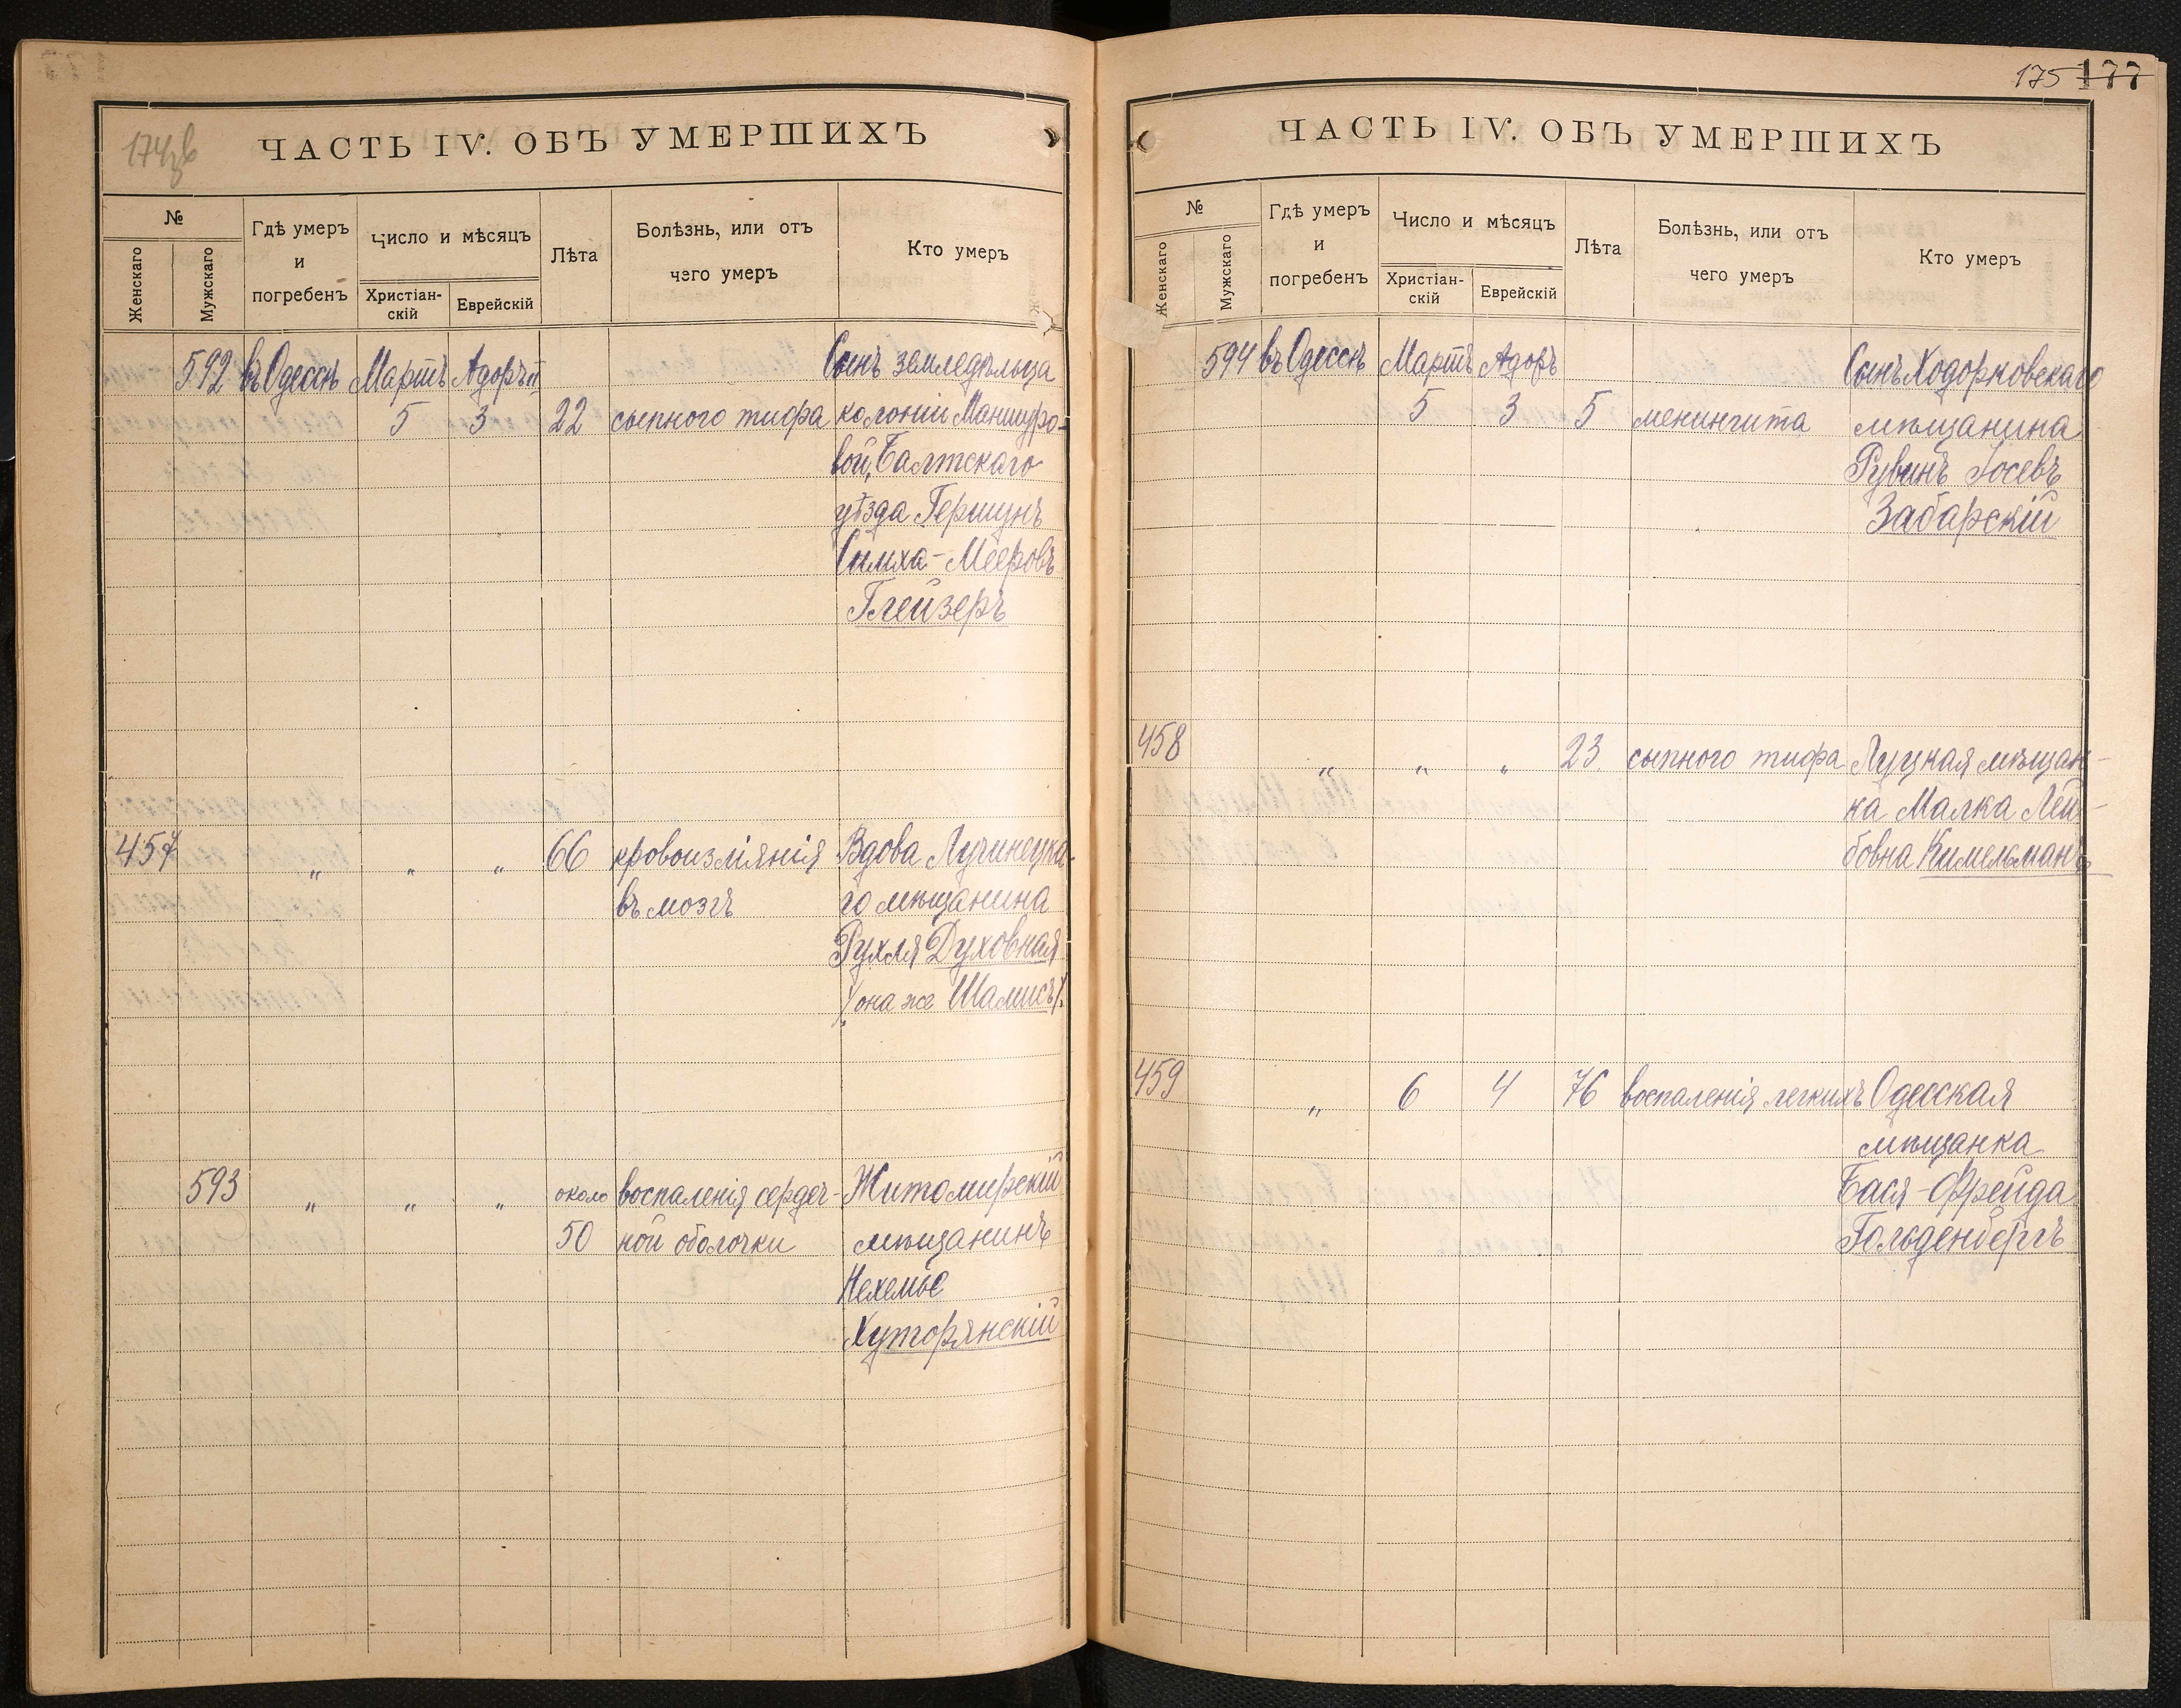 174зв
ЧАСТЬ IV. ОБЪ УМЕРШИХЪ
№
Женскаго
Мужскаго
Гдѣ умеръ
и
погребенъ
Число и мѣсяцъ
Христіан-
скій
Еврейскій
Лѣта
Болѣзнь, или отъ
чего умеръ
Кто умеръ
592 въ Одессѣ Мартъ Адоръ II Сынъ земледѣльца
5 3 22 сыпного тифа колоніи Маншуро-
вой, Балтскаго
уѣзда Гершунъ
Симха-Мееровъ
Глейзеръ
457 " " " 66 кровоизліянія Вдова Лучинецка-
въ мозгъ го мѣщанина
Рухля Духовная
/она же Шамисъ/.
593 " " " около воспаленія сердеч- Житомирскій
50 ной оболочки мѣщанинъ
Нехемье
Хуторянскій
175 177
ЧАСТЬ IV. ОБЪ УМЕРШИХЪ
№
Женскаго
Мужскаго
Гдѣ умеръ
и
погребенъ
Число и мѣсяцъ
Христіан-
скій
Еврейскій
Лѣта
Болѣзнь, или отъ
чего умеръ
Кто умеръ
594 въ Одессѣ Мартъ Адоръ Сынъ Ходорковскаго
5 3 5 менингита мѣщанина
Рувинъ Іосевъ
Забарскій
458 " " " 23 сыпного тифа Луцкая мѣщан-
ка Малка Лей-
бовна Кимельманъ
459 " 6 4 76 воспаленія легкихъ Одесская
мѣщанка
Бася-Фрейда
Гольденбергъ